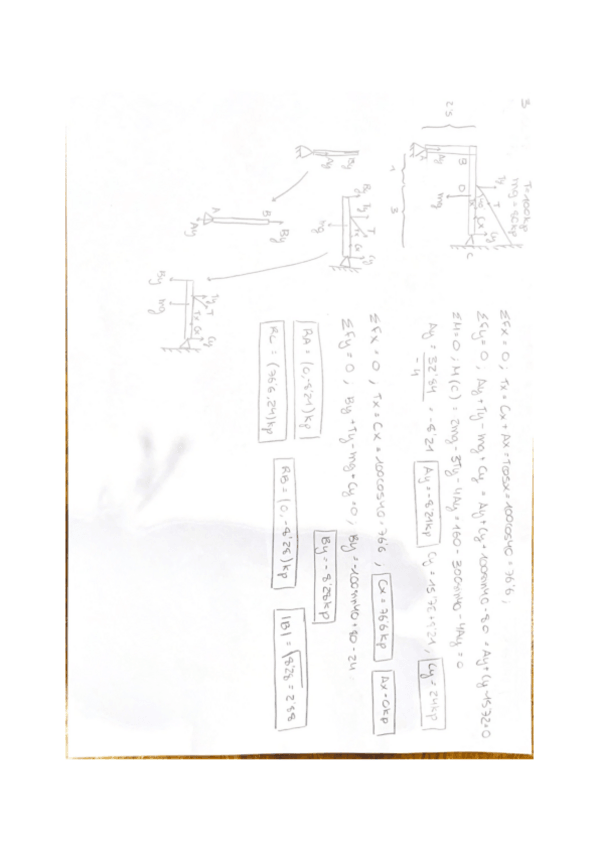 3
T=100kp
mg=80kp
2'5
1
3
Ty
T
Cx
Cy
C
B
O
mg
Ay
A
By
Ay
By
Ty
T
Cx
Cy
mg
A
B
By
Ay
By
mg
Ty
T
Tx
Cx
Cy
ΣFx=0; Tx=Cx+Ax=Tcosx=100cos40=76'6;
ΣFy=0; Ay+Ty-mg+Cy=Ay+Cy+100sin40-80=Ay+Cy-15'72=0
ΣM=0; M(C)=2mg-3Ty-4Ay=160-300sin40-4Ay=0
Ay=32'84/-4=-8'21 Ay=-8'21kp Cy=15'72+8'21, Cy=24kp
ΣFx=0, Tx=Cx=100cos40=76'6, Cx=76'6kp Ax=0kp
ΣFy=0; By+Ty-mg+Cy=0; By=-100sin40+80-24
By=-8'28kp
RA=(0,-8'21)kp RB=(0,-8'28)kp |B|=√8'28=2'88
RC=(76'6,24)kp